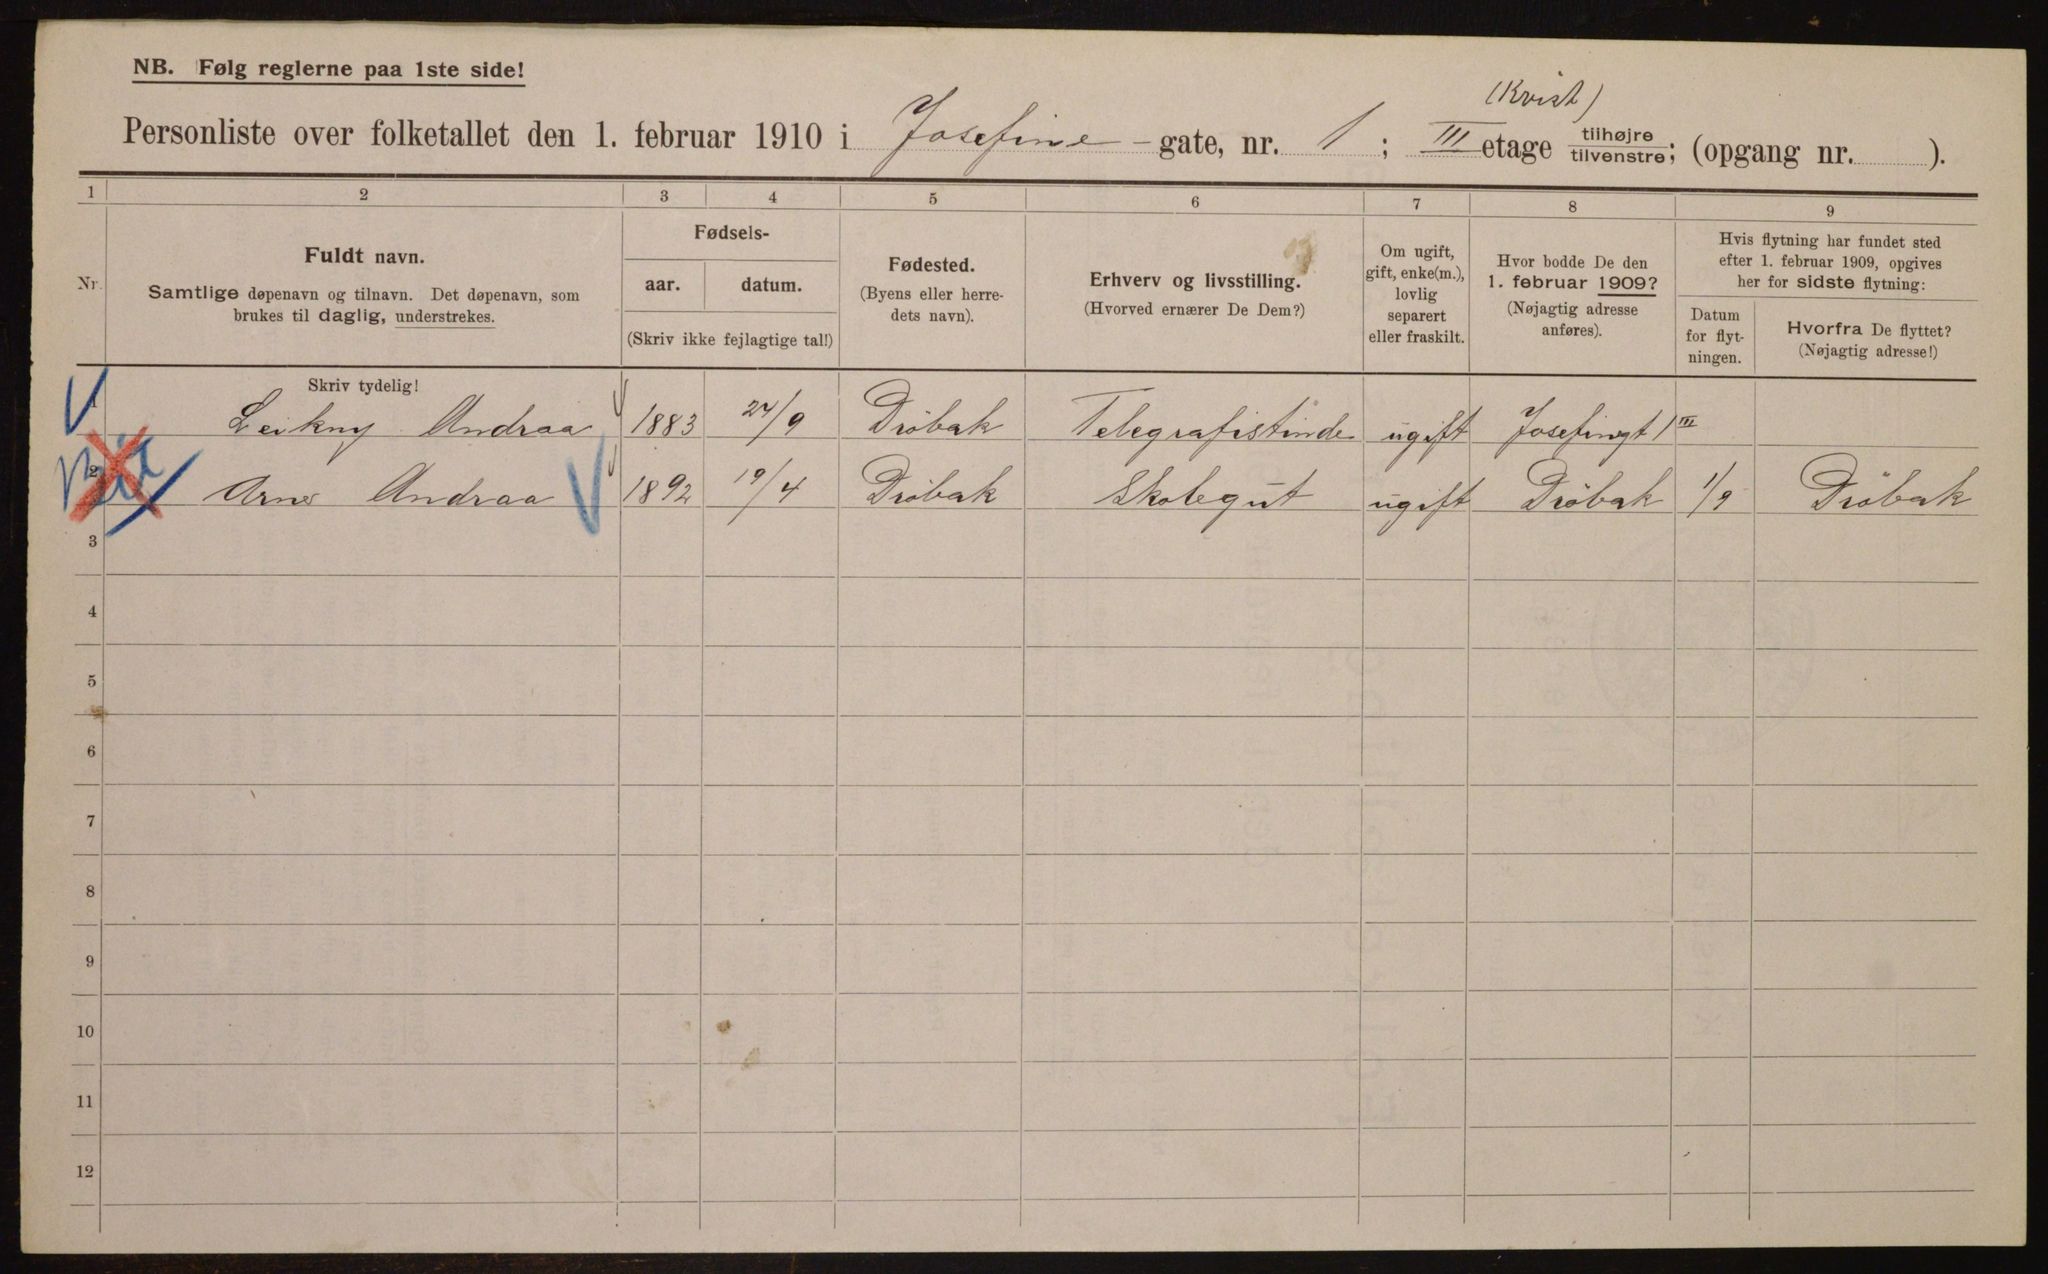 NB. Følg reglerne paa 1ste side!
(Kvist)
Personliste over folketallet den 1. februar 1910 i Josefine - gate, nr. 1; III etage tilhøjre/tilvenstre; (opgang nr. ).
1 2 3 4 5 6 7 8 9
Nr.
Fuldt navn.
Samtlige døpenavn og tilnavn. Det døpenavn, som
brukes til daglig, understrekes.
Skriv tydelig!
Fødsels-
aar. datum.
(Skriv ikke fejlagtige tal!)
Fødested.
(Byens eller herre-
dets navn).
Erhverv og livsstilling.
(Hvorved ernærer De Dem?)
Om ugift,
gift, enke(m.),
lovlig
separert
eller fraskilt.
Hvor bodde De den
1. februar 1909?
(Nøjagtig adresse
anføres).
Hvis flytning har fundet sted
efter 1. februar 1909, opgives
her for sidste flytning:
Datum
for flyt-
ningen.
Hvorfra De flyttet?
(Nøjagtig adresse!)
1 Leikny Andraa 1883 24/9 Dröbak Telegrafistinde ugift Josefinegt 1 III
2 Arne Andraa 1892 19/4 Dröbak Skolegut ugift Dröbak 1/9 Dröbak
3
4
5
6
7
8
9
10
11
12